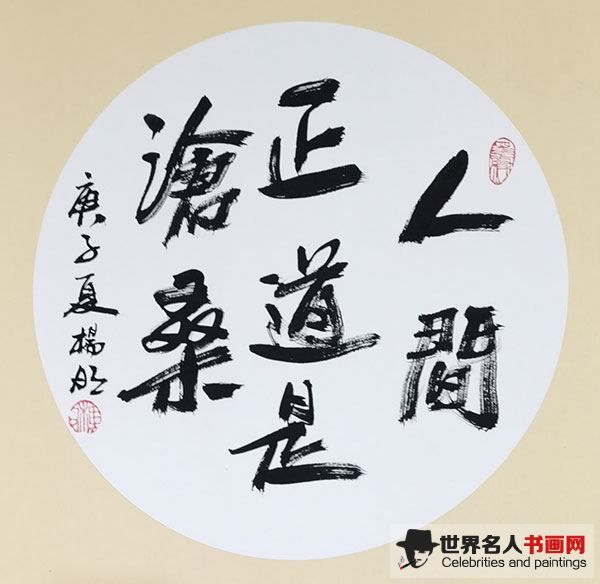 人間
正道是
滄桑
庚子夏楊明
世界名人书画网
Celebrities and paintings